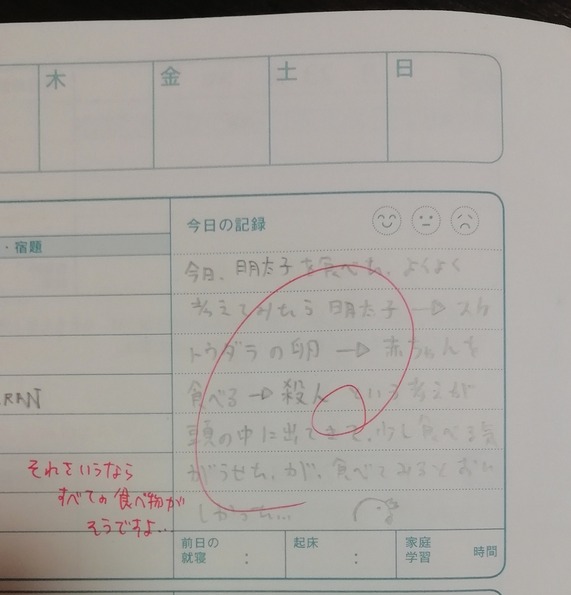 木
金
土
日
今日の記録
・宿題
今日、明太子を食べた。よくよく
考えてみたら明太子→スケ
トウダラの卵→赤ちゃんを
食べる→殺人という考えが
頭の中に出てきて、少し食べる気
がうせた。が、食べてみるとおい
しかった…
RAN
それをいうなら
すべての食べ物が
そうですよ…
前日の
就寝
:
起床
:
家庭
学習
時間